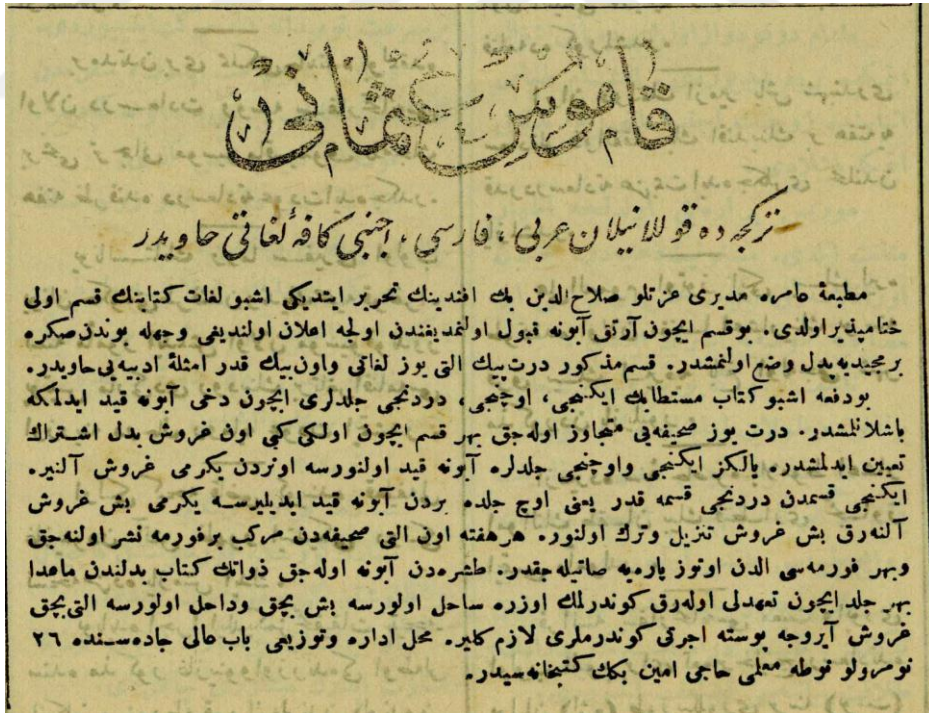 قاموس عثمانی
تركجه‌ده قوللانیلان عربی، فارسی، اجنبی كافهٔ لغاتی حاویدر
مطبعهٔ عامره مدیری عزتلو صلاح الدین بك افندینك تحریر ایتدیكی اشبو لغات كتابنك قسم اولی
ختامپذیر اولدی. بوقسم ایچون آرتق آبونه قبول اولنمدیغندن اولجه اعلان اولندیغی وجهله بوندن صكره
بر مجیدیه بدل وضع اولنمشدر. قسم مذكور درت بیك التی یوز لغاتی واون بیك قدر امثلهٔ ادبیه‌یی حاویدر.
بودفعه اشبو كتاب مستطابك ایكنجی، اوچنجی، دردنجی جلدلری ایچون دخی آبونه قید ایدلمكه
باشلانلمشدر. درت یوز صحیفه‌یی متجاوز اوله‌جق بهر قسم ایچون اولكی كبی اون غروش بدل اشتراك
تعیین ایدلمشدر. یالكز ایكنجی واوچنجی جلدلره آبونه قید اولنورسه اونردن یكرمی غروش آلنیر.
ایكنجی قسمدن دردنجی قسمه قدر یعنی اوچ جلده بردن آبونه قید ایدیلیرسه یكرمی بش غروش
آلنه‌رق بش غروش تنزیل وترك اولنور. هر هفته اون التی صحیفه‌دن مركب برفورمه نشر اولنه‌جق
وبهر فورمه‌سی الدن اوتوز پاره‌یه صاتیله‌جقدر. طشره‌دن آبونه اوله‌جق ذواتك كتاب بدلندن ماعدا
بهر جلد ایچون تعهدلی اوله‌رق كوندرلمك اوزره ساحل اولورسه بش بچق وداخل اولورسه التی بچق
غروش آیروجه پوسته اجرتی كوندرملری لازم كلیر. محل اداره وتوزیعی باب عالی جاده‌سنده ٢٦
نومرولو نوطه معلمی حاجی امین بكك كتبخانه‌سیدر.